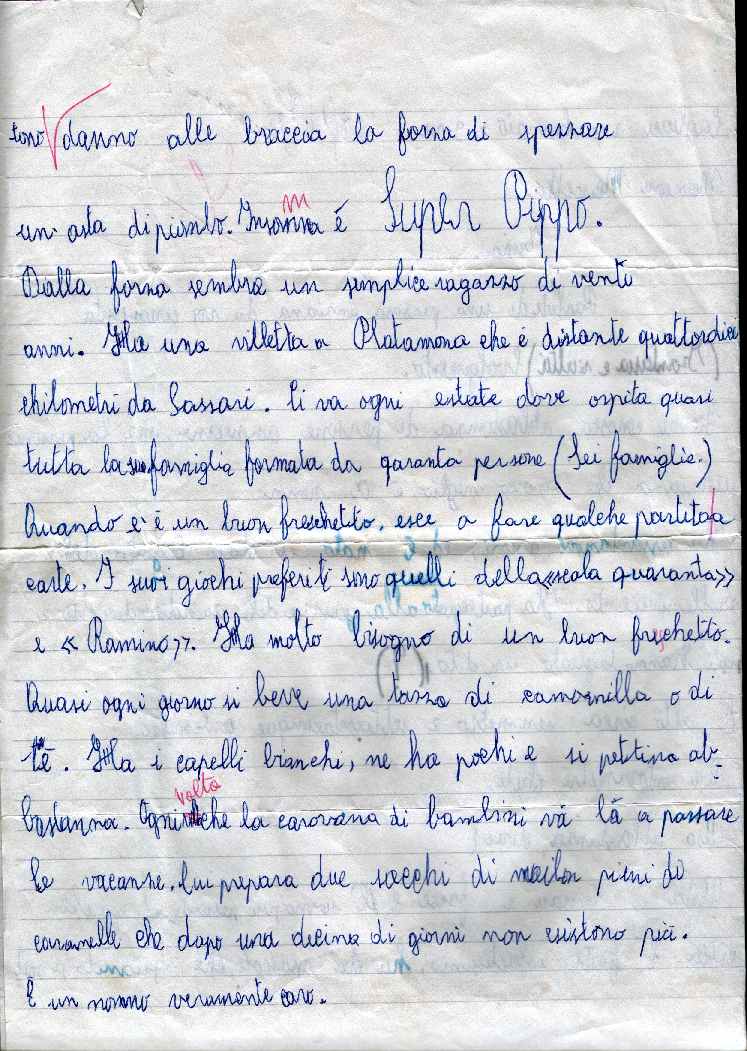 tono danno alle braccia la forza di spezzare
un asta di piombo. Insomma é Super Pippo.
Dalla forza sembra un semplice ragazzo di venti
anni. Ha una villetta a Platamona che é distante quattordici
chilometri da Sassari. Ci va ogni estate dove ospita quasi
tutta la sua famiglia formata da qaranta persone (Sei famiglie.)
Quando c'é un buon freschetito, esce a fare qualche partita a
carte. I suoi giochi preferiti sono quelli della «scala quaranta»
e « Ramino ». Ha molto bisogno di un buon freschetto.
Quasi ogni giorno si beve una tazza di camomilla o di
té. Ha i capelli bianchi, ne ha pochi e si pettina ab-
volta
bastanza. Ogni che la carovana di bambini vá lá a passare
le vacanze, lui prepara due sacchi di nailon pieni di
caramelle che dopo una decina di giorni non esistono più.
É un nonno veramente caro.